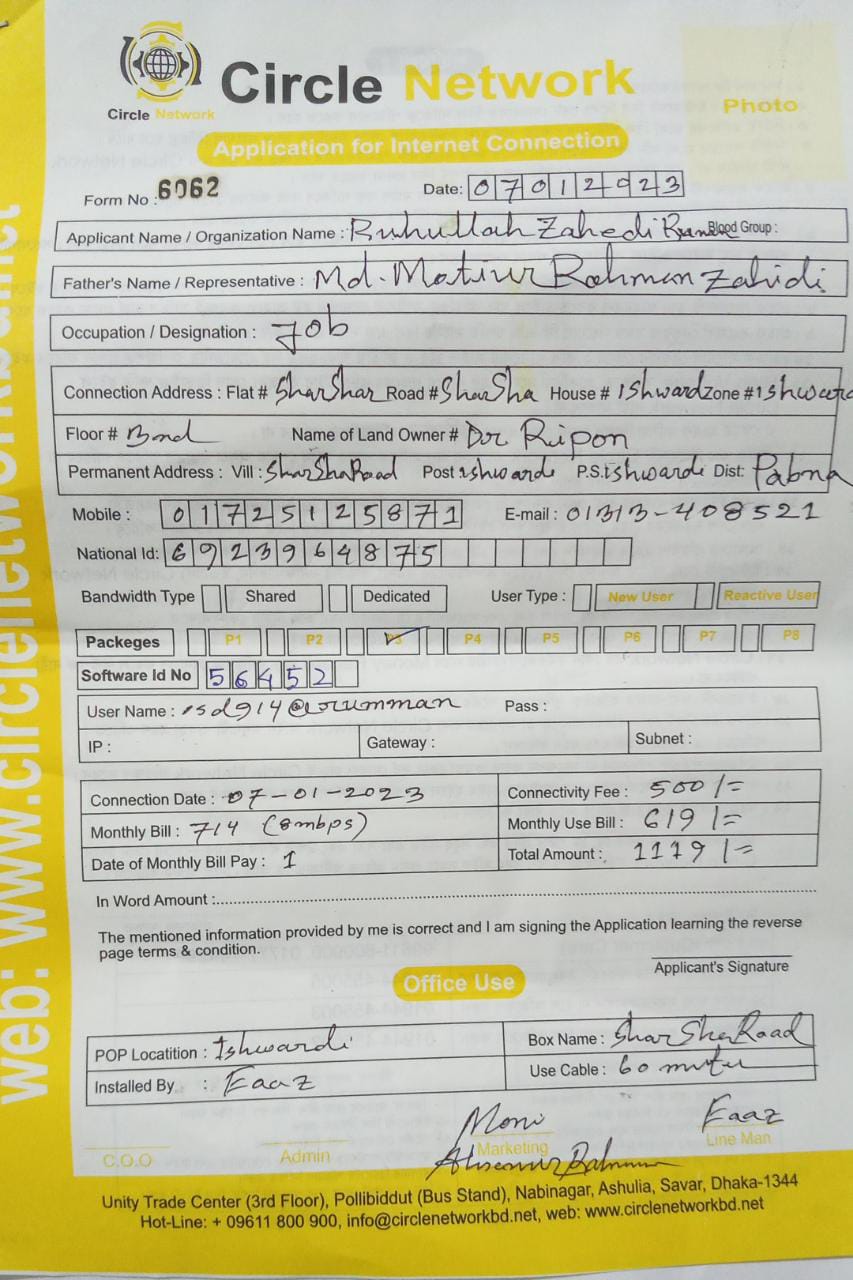 Circle Network
Circle Network
Photo
Application for Internet Connection
Form No : 6062
Date: 07012023
Applicant Name / Organization Name : Ruhullah Zahedi Blood Group :
Father's Name / Representative : Md. Matiur Rahman Zahidi
Occupation / Designation : Job
Connection Address : Flat # SharShar Road # SharSha House # Ishward Zone # Ishward
Floor # Name of Land Owner # Dr Ripon
Permanent Address : Vill : SharShaRoad Post ishwardi P.S. Ishwardi Dist: Pabna
Mobile : 01725125871 E-mail : 01313-408521
National Id: 6923964875
Bandwidth Type Shared Dedicated User Type : New User Reactive User
Packeges P1 P2 P3 P4 P5 P6 P7 P8
Software Id No 56452
User Name : Pass :
IP : Gateway : Subnet :
Connection Date : 07-01-2023 Connectivity Fee : 500/=
Monthly Bill : 714 (8mbps) Monthly Use Bill : 619/=
Date of Monthly Bill Pay : 1 Total Amount : 1119/=
In Word Amount :
The mentioned information provided by me is correct and I am signing the Application learning the reverse
page terms & condition.
Applicant's Signature
Office Use
POP Locatition : Ishwardi Box Name : SharShaRoad
Installed By : Eaaz Use Cable : 60 mitu
Moni Eaaz
C.O.O Admin Marketing Line Man
Unity Trade Center (3rd Floor), Pollibiddut (Bus Stand), Nabinagar, Ashulia, Savar, Dhaka-1344
Hot-Line: + 09611 800 900, info@circlenetworkbd.net, web: www.circlenetworkbd.net
web: www.circlenetworkbd.net